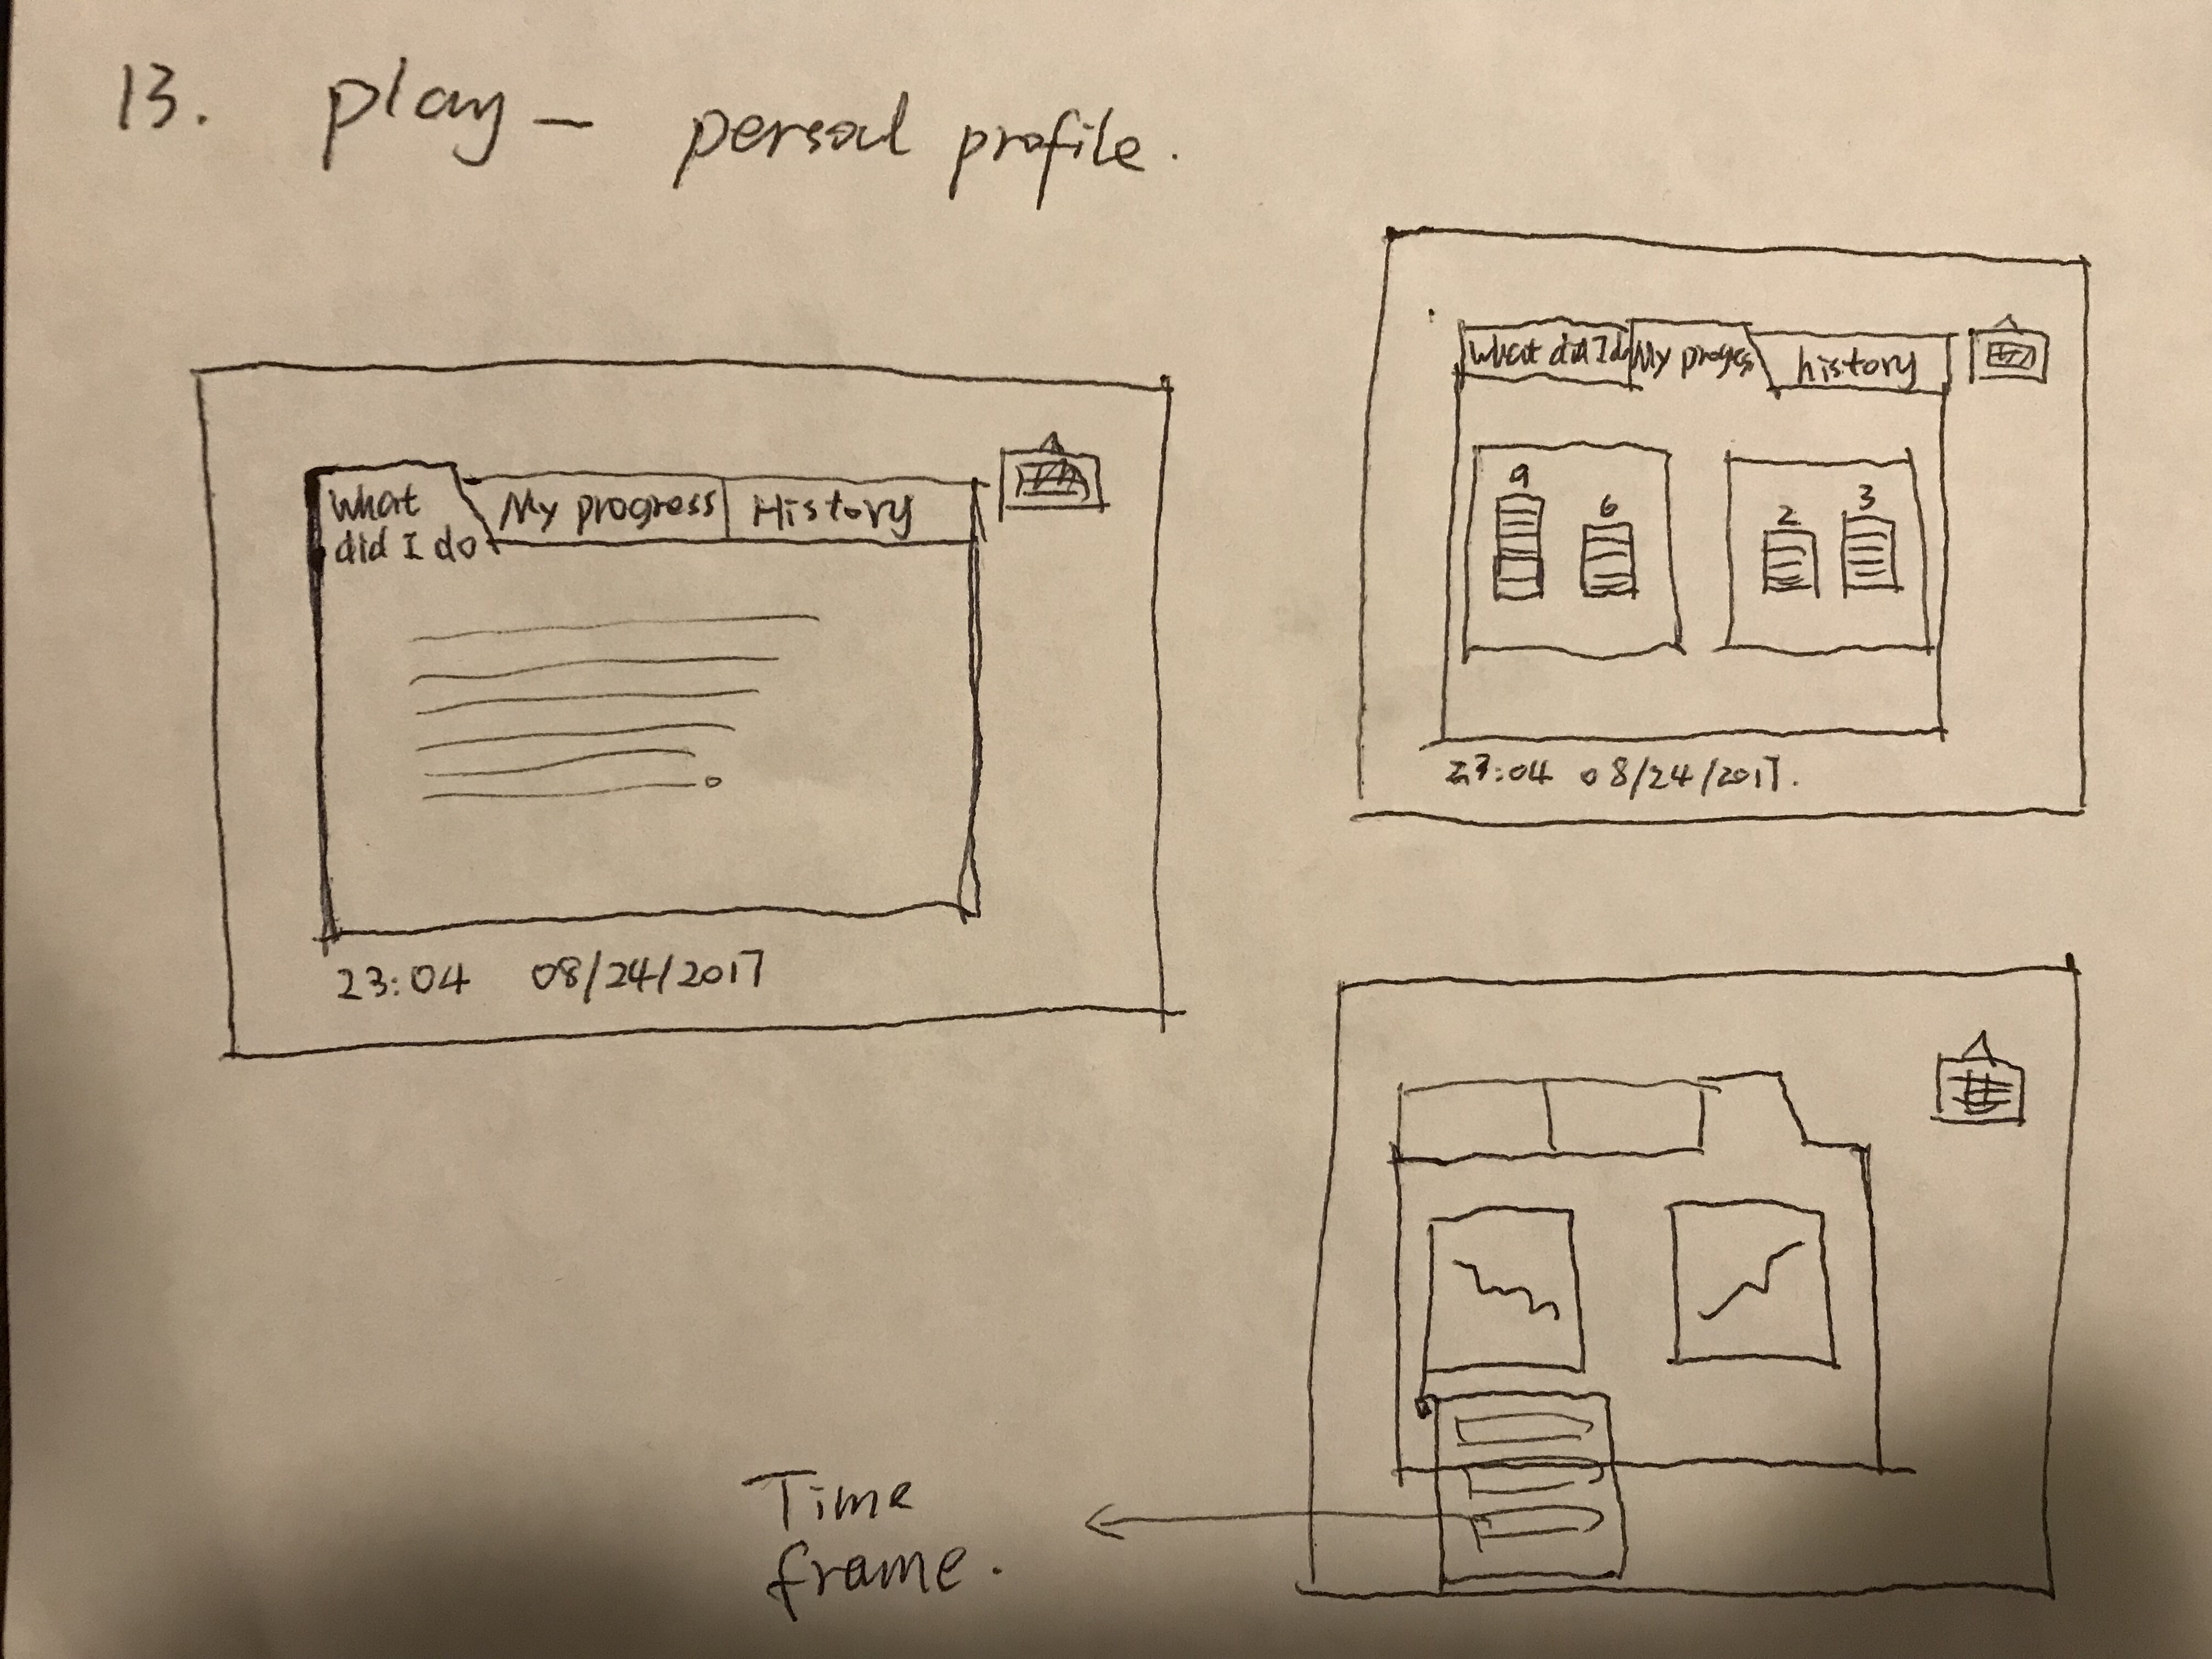 13. play - persoal profile.
What
did I do
My progress
History
23:04 08/24/2017
What did I do
My progess
history
9
6
2
3
23:04 08/24/2017.
Time
frame.